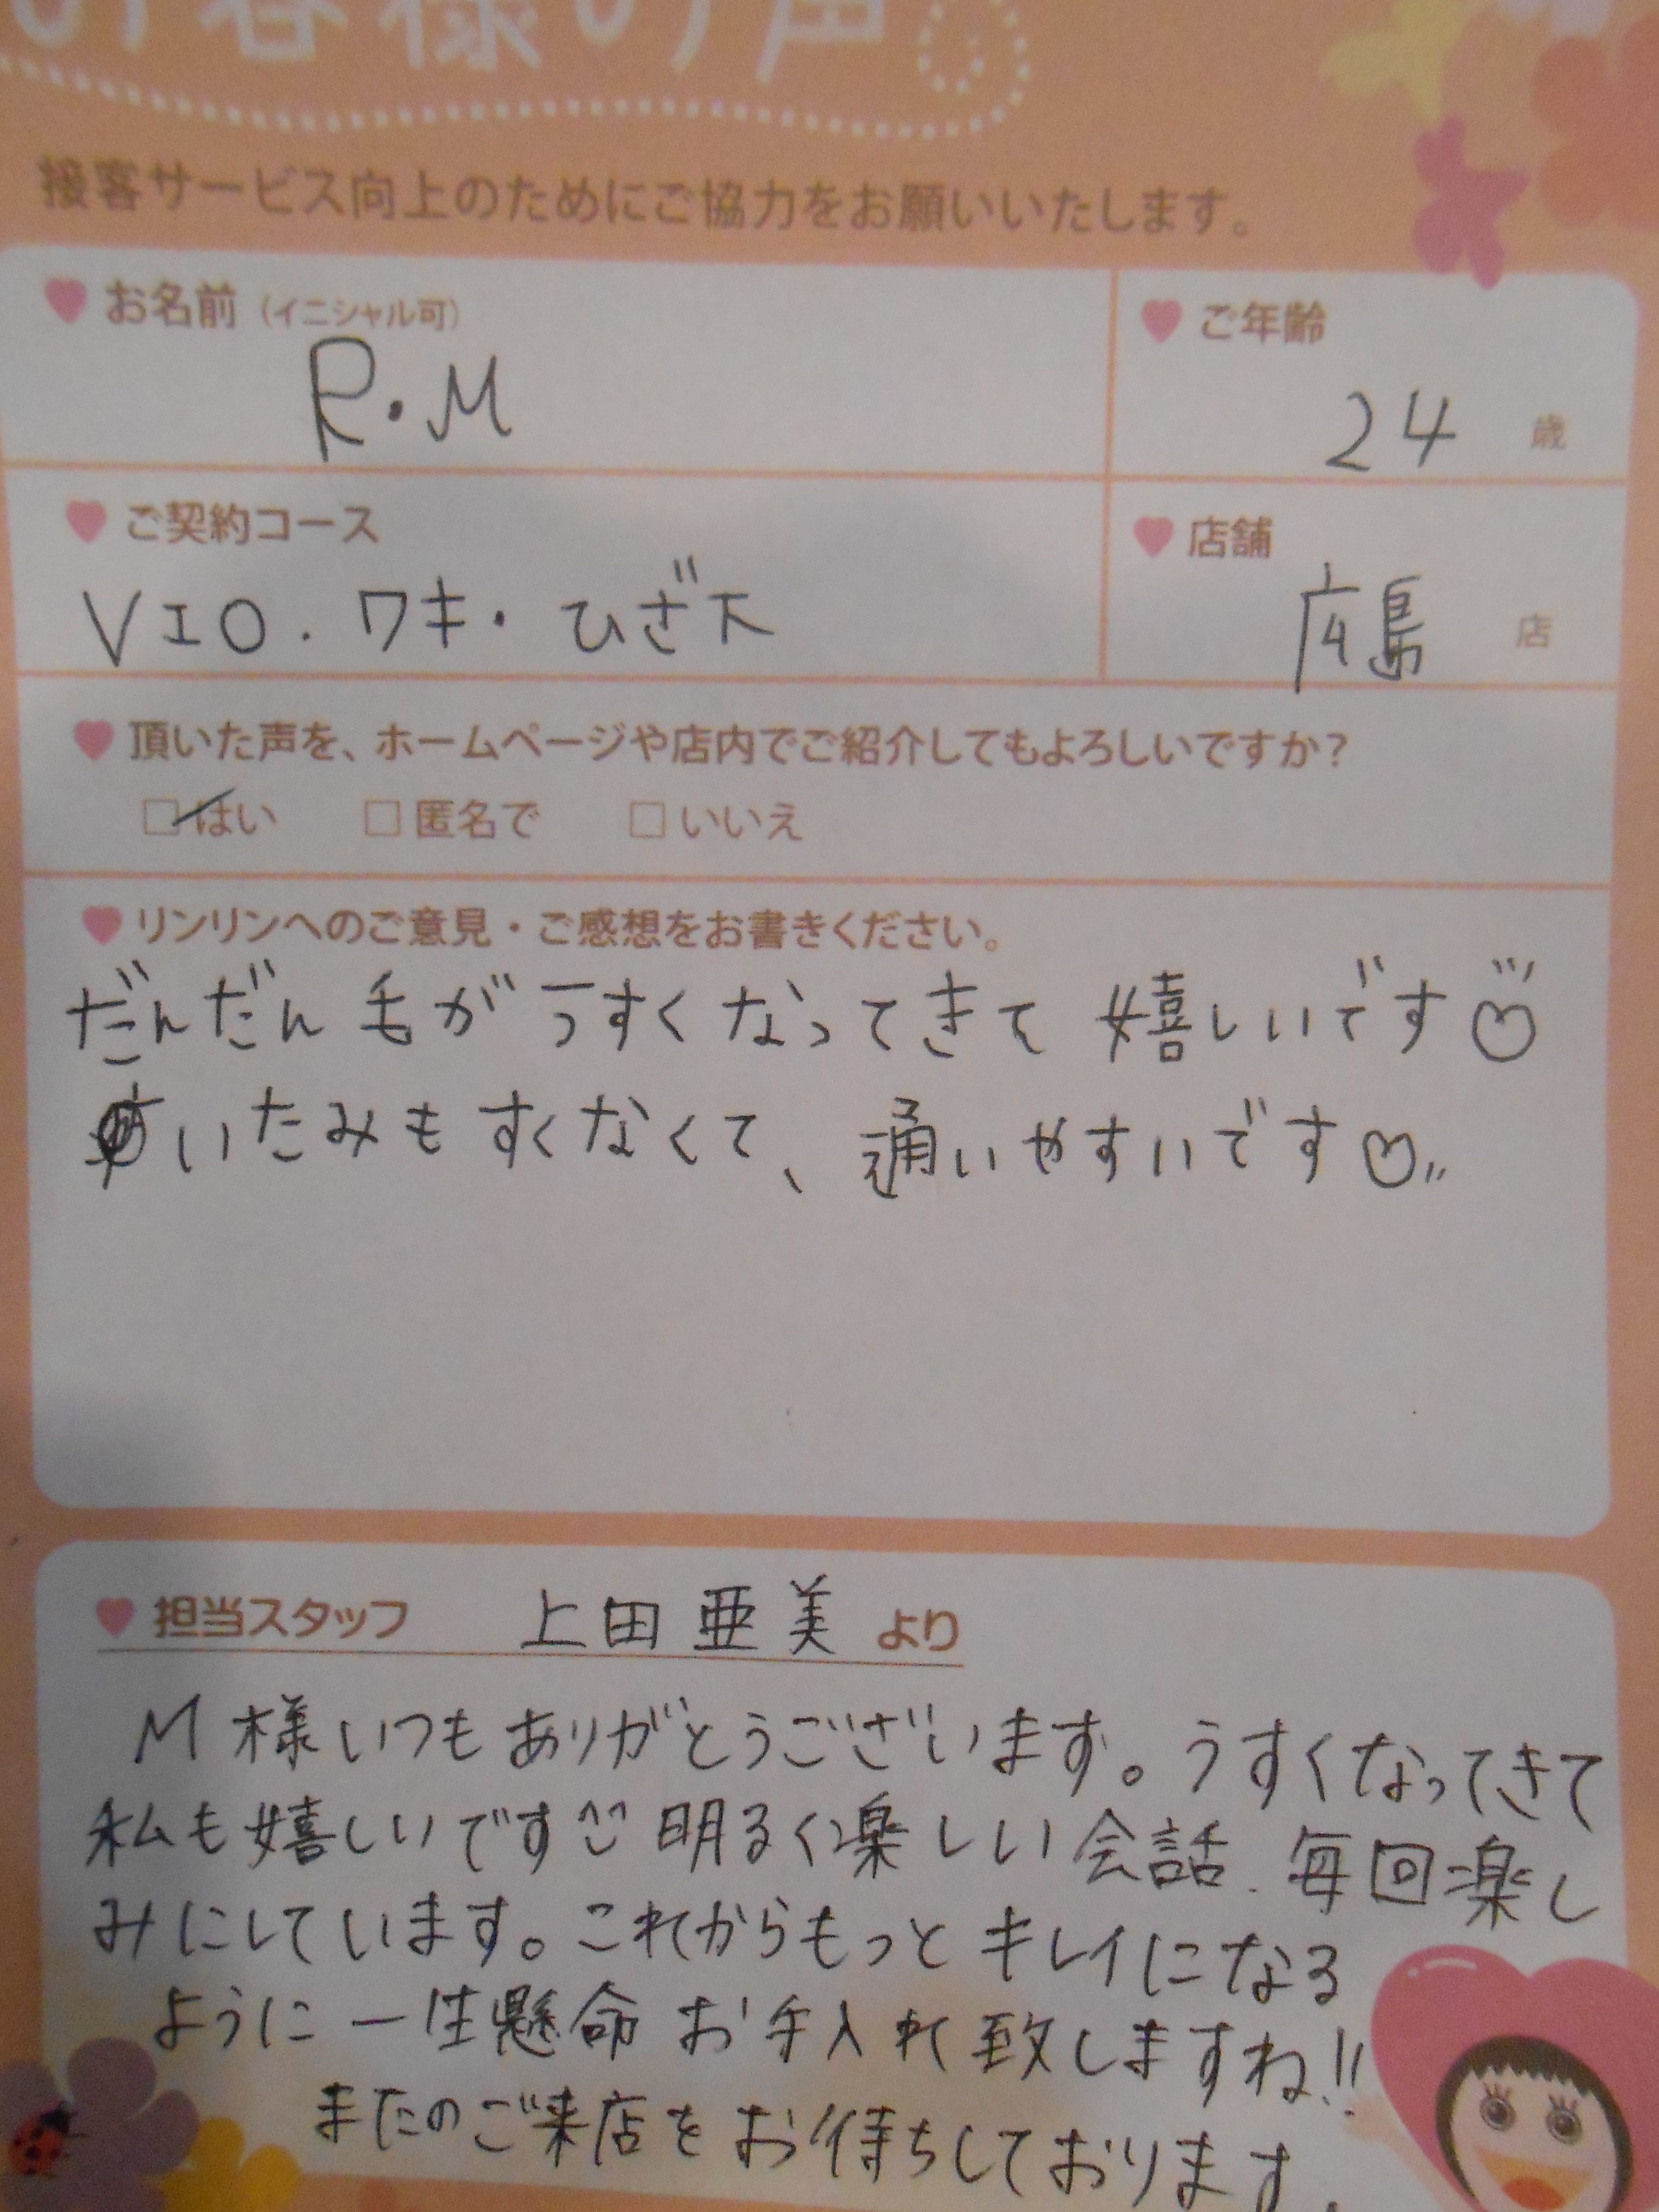 お客様の声
接客サービス向上のためにご協力をお願いいたします。
お名前（イニシャル可）
R・M
ご年齢
24 歳
ご契約コース
VIO．ワキ・ひざ下
店舗
広島 店
頂いた声を、ホームページや店内でご紹介してもよろしいですか？
□はい □匿名で □いいえ
リンリンへのご意見・ご感想をお書きください。
だんだん毛がうすくなってきて嬉しいです♡
いたみもすくなくて、通いやすいです♡
担当スタッフ 上田亜美 より
M様いつもありがとうございます。うすくなってきて
私も嬉しいです 明るく楽しい会話、毎回楽し
みにしています。これからもっとキレイになる
ように一生懸命お手入れ致しますね!!
またのご来店をお待ちしております。